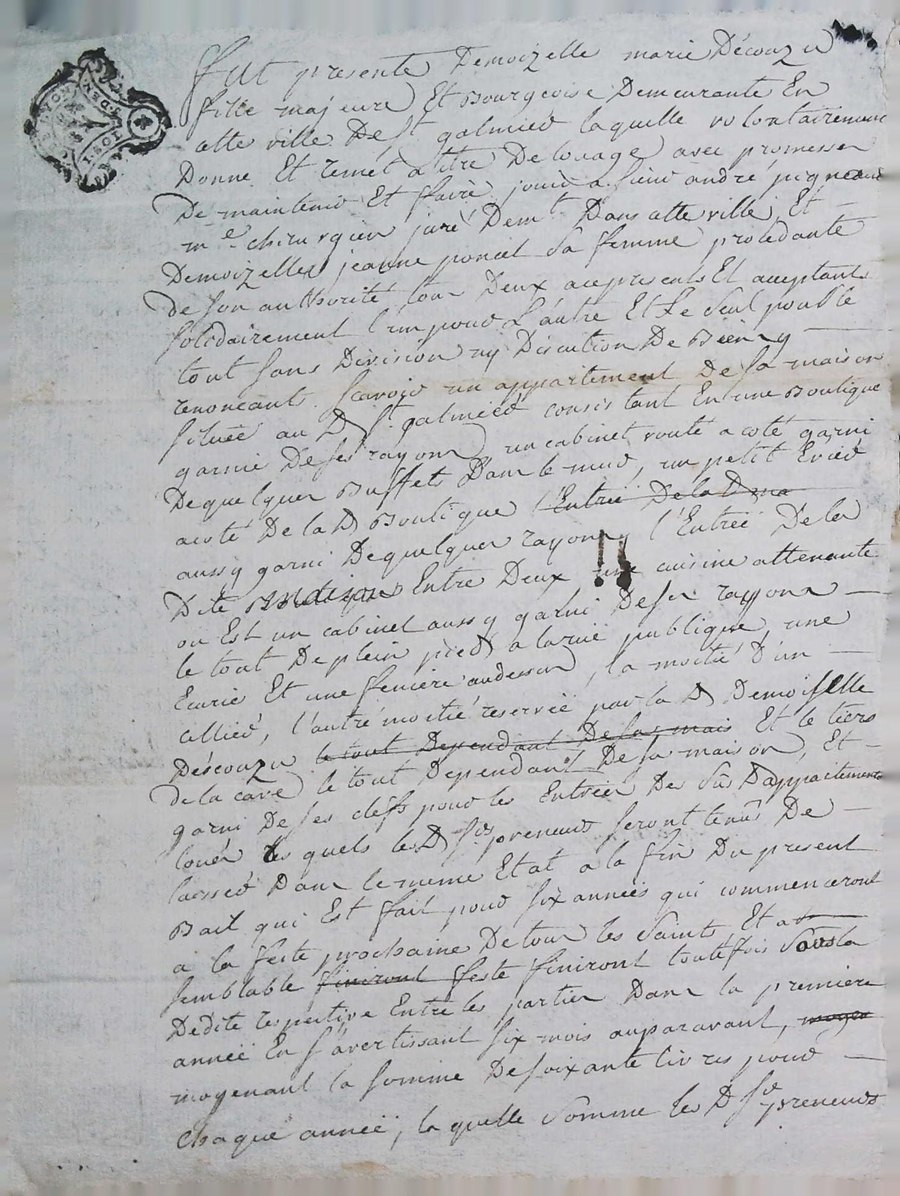 fut presente Demoizelle marie Découzu
fille majeure Et Bourgeoise Demeurante En
cette ville De St galmied laquelle volontairement
Donne Et remet a titre De louage avec promesse
De maintenir Et faire jouir a sieur andre
me chirurgien juré Demt Dans cette ville, Et
Demoizelle jeanne poncet sa femme procedante
De son authorité, tous Deux acepresents Et aceptants
solidairement l'un pour L'autre Et Le seul pour le
tout sans Division ny Discution De Biens
renoncant. Scavoir un appartement De sa maison
située au D St galmied consistant En une Boutique
garnie De ses rayons, un cabinet voute a coté garni
De quelques Buffets Dans le mur, un petit Evier
acoté De la D Boutique l'Entrée De la D
aussy garni De quelques rayons l'Entrée De la
Dite Entre Deux cuisine attenante
ou Est un cabinet aussy garni De ses rayons
le tout De plein pied a la rue publique, une
Ecurie Et une feniere audessus, la moitié D'un
cellier, l'autre moitié reservée par la D Demoiselle
Déscouzu le tout Dependant De la mais Et le tiers
De la cave, le tout Dependant De sa maison, Et
garni De ses clefs pour les Entrées De Sus D appartements
loués les quels les D Srs preneurs seront tenûs De
laisser Dans le meme Etat a la fin Du present
Bail qui Est fait pour six années qui commenceront
a la feste prochaine De tous les Saints, Et a
semblable finiront feste finiront toutefois Sous la
Dedite respective Entre les parties Dans la premiere
année En s'avertissant six mois auparavant, moyen
moyenant la somme De soixante livres pour
chaque année, la quelle Sômme les D Srs preneurs